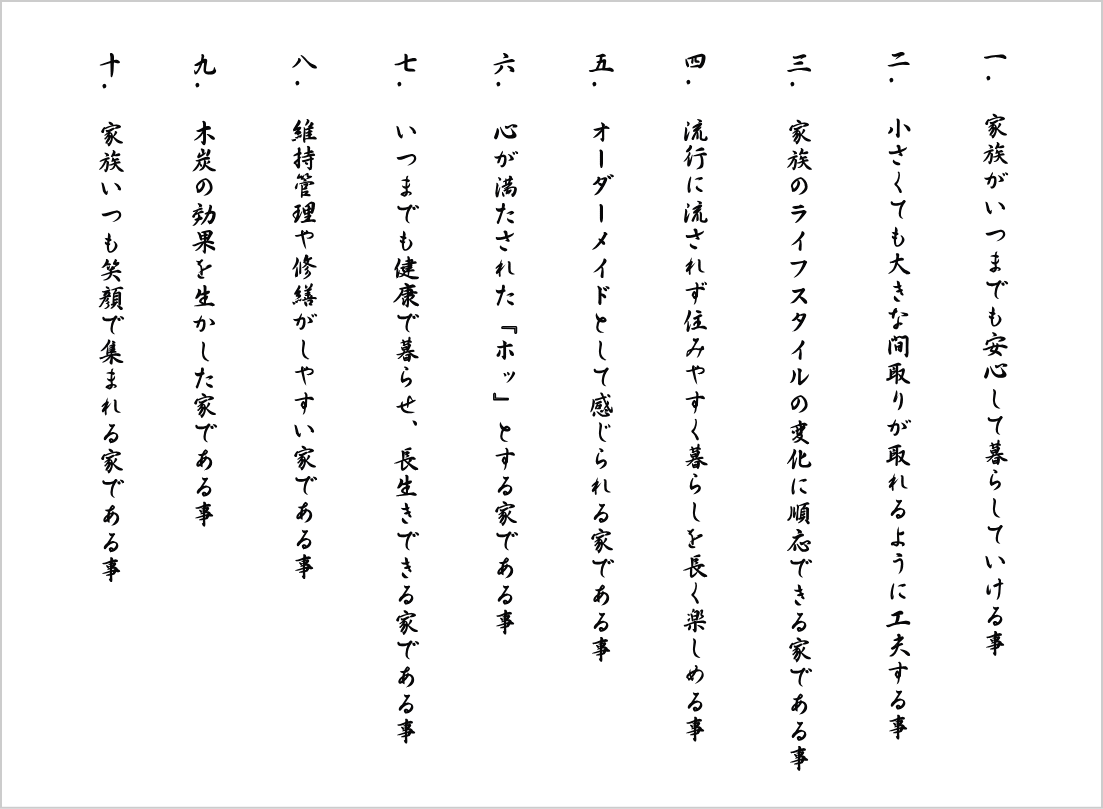 一. 家族がいつまでも安心して暮らしていける事
二. 小さくても大きな間取りが取れるように工夫する事
三. 家族のライフスタイルの変化に順応できる家である事
四. 流行に流されず住みやすく暮らしを長く楽しめる事
五. オーダーメイドとして感じられる家である事
六. 心が満たされた『ホッ』とする家である事
七. いつまでも健康で暮らせ、長生きできる家である事
八. 維持管理や修繕がしやすい家である事
九. 木炭の効果を生かした家である事
十. 家族いつも笑顔で集まれる家である事